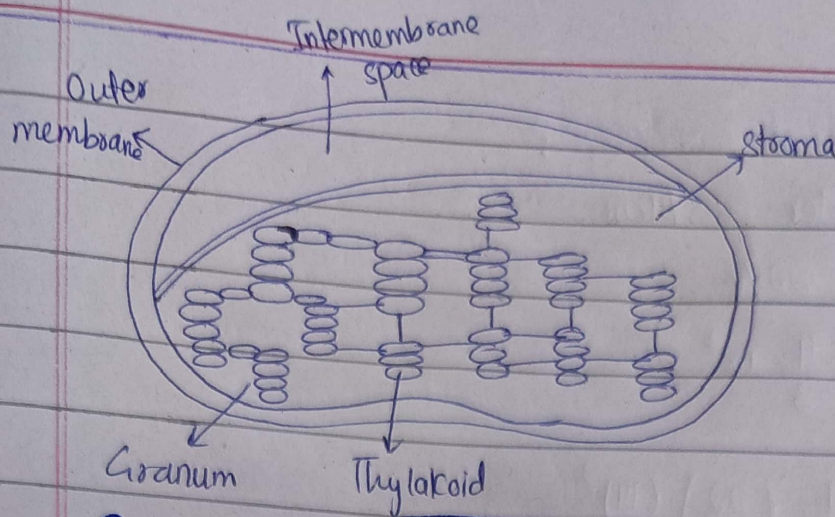 Intermembrane
space
Outer
membrane
stroma
Granum
Thylakoid